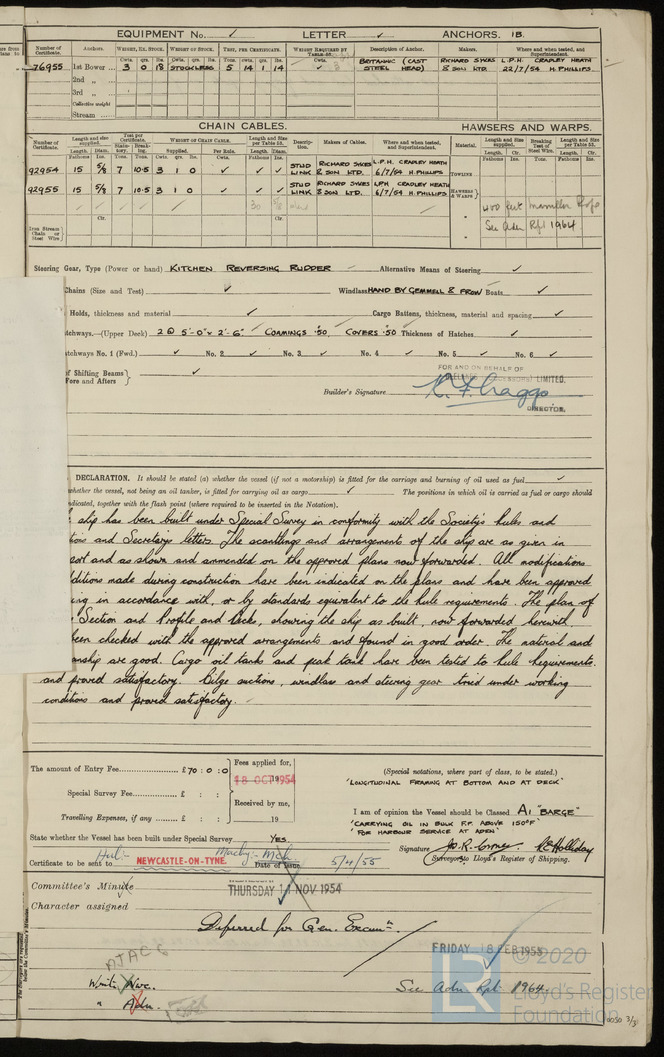 EQUIPMENT No. ✓ LETTER ✓ ANCHORS. 1B.
Number of Certificate. Anchors. WEIGHT, EX. STOCK. WEIGHT OF STOCK. TEST, PER CERTIFICATE. WEIGHT REQUIRED BY TABLE 53. Description of Anchor. Makers. Where and when tested, and Superintendent.
Cwts. qrs. lbs. Cwts. qrs. lbs. Tons. cwts. qrs. lbs. Cwts.
76955 1st Bower 3 0 18 STOCKLESS 5 14 1 14 ✓ BRITANNIC (CAST STEEL HEAD) RICHARD SYKES & SON LTD. L.P.H. CRADLEY HEATH 22/7/54 H. PHILLIPS.
2nd „
3rd „
Collective weight
Stream
CHAIN CABLES. HAWSERS AND WARPS.
Number of Certificate. Length and size supplied. Test per Certificate. WEIGHT OF CHAIN CABLE. Length and Size per Table 53. Description. Makers of Cables. Where and when tested, and Superintendent. Material. Length and Size supplied. Breaking Test of Steel Wire. Length and Size per Table 53.
Length. Diam. Statutory. Breaking. Supplied. Per Rule. Length. Diam.
Fathoms Ins. Tons. Tons. Cwts. qrs. lbs. Cwts. Fathoms Ins.
92954 15 5/8 7 10.5 3 1 0 ✓ ✓ ✓ STUD LINK RICHARD SYKES & SON LTD. L.P.H. CRADLEY HEATH 6/7/54 H. PHILLIPS TOWLINE
92955 15 5/8 7 10.5 3 1 0 ✓ ✓ ✓ STUD LINK RICHARD SYKES & SON LTD. LPH CRADLEY HEATH 6/7/54 H. PHILLIPS HAWSERS & WARPS
30 5/8
400 feet Manilla Rope
See Aden Rpt 1964
Iron Stream Chain or Steel Wire
Steering Gear, Type (Power or hand) KITCHEN REVERSING RUDDER Alternative Means of Steering ✓
Chains (Size and Test) ✓ Windlass HAND BY GEMMELL & FROW Boats ✓
Holds, thickness and material ✓ Cargo Battens, thickness, material and spacing ✓
tchways.—(Upper Deck) 2 @ 5'-0" x 2'-6" COAMINGS .50, COVERS .50 Thickness of Hatches ✓
tchways No. 1 (Fwd.) ✓ No. 2 ✓ No. 3 ✓ No. 4 ✓ No. 5 ✓ No. 6 ✓
of Shifting Beams
Fore and Afters ✓
FOR AND ON BEHALF OF
LIMITED.
Builder's Signature
DIRECTOR.
DECLARATION. It should be stated (a) whether the vessel (if not a motorship) is fitted for the carriage and burning of oil used as fuel ✓
whether the vessel, not being an oil tanker, is fitted for carrying oil as cargo ✓ The positions in which oil is carried as fuel or cargo should
ndicated, together with the flash point (where required to be inserted in the Notation).
ship has been built under Special Survey in conformity with the Society's Rules and
tions and Secretary's letters. The scantlings and arrangements of the ship are as given in
port and as shown and ammended on the approved plans now forwarded. All modifications
ditions made during construction have been indicated on the plans and have been approved
ing in accordance with, or by standards equivalent to the Rule requirements. The plan of
Section and Profile and Decks, showing the ship as built, now forwarded herewith
een checked with the approved arrangements and found in good order. The material and
anship are good. Cargo oil tanks and peak tank have been tested to Rule Requirements
and proved satisfactory. Bilge suctions, windlass and steering gear tried under working
conditions and proved satisfactory.
The amount of Entry Fee £70 : 0 : 0
Fees applied for,
18 OCT 1954
Special Survey Fee £ : :
Received by me,
Travelling Expenses, if any £ : : 19
(Special notations, where part of class, to be stated.)
'LONGITUDINAL FRAMING AT BOTTOM AND AT DECK'
I am of opinion the Vessel should be Classed A1 "BARGE"
'CARRYING OIL IN BULK F.P. ABOVE 150°F'
'FOR HARBOUR SERVICE AT ADEN'
State whether the Vessel has been built under Special Survey YES.
Signature
Certificate to be sent to Hull NEWCASTLE-ON-TYNE. Date of issue 5/4/55
Surveyors to Lloyd's Register of Shipping.
Committee's Minute THURSDAY 11 NOV 1954
Character assigned
Deferred for Gen. Exam.
FRIDAY 18 FEB 1955
Write Nwc.
" Adn.
See Adn Rpt 1964.
© 2020
LR
Lloyd's Register
Foundation
0050 3/3